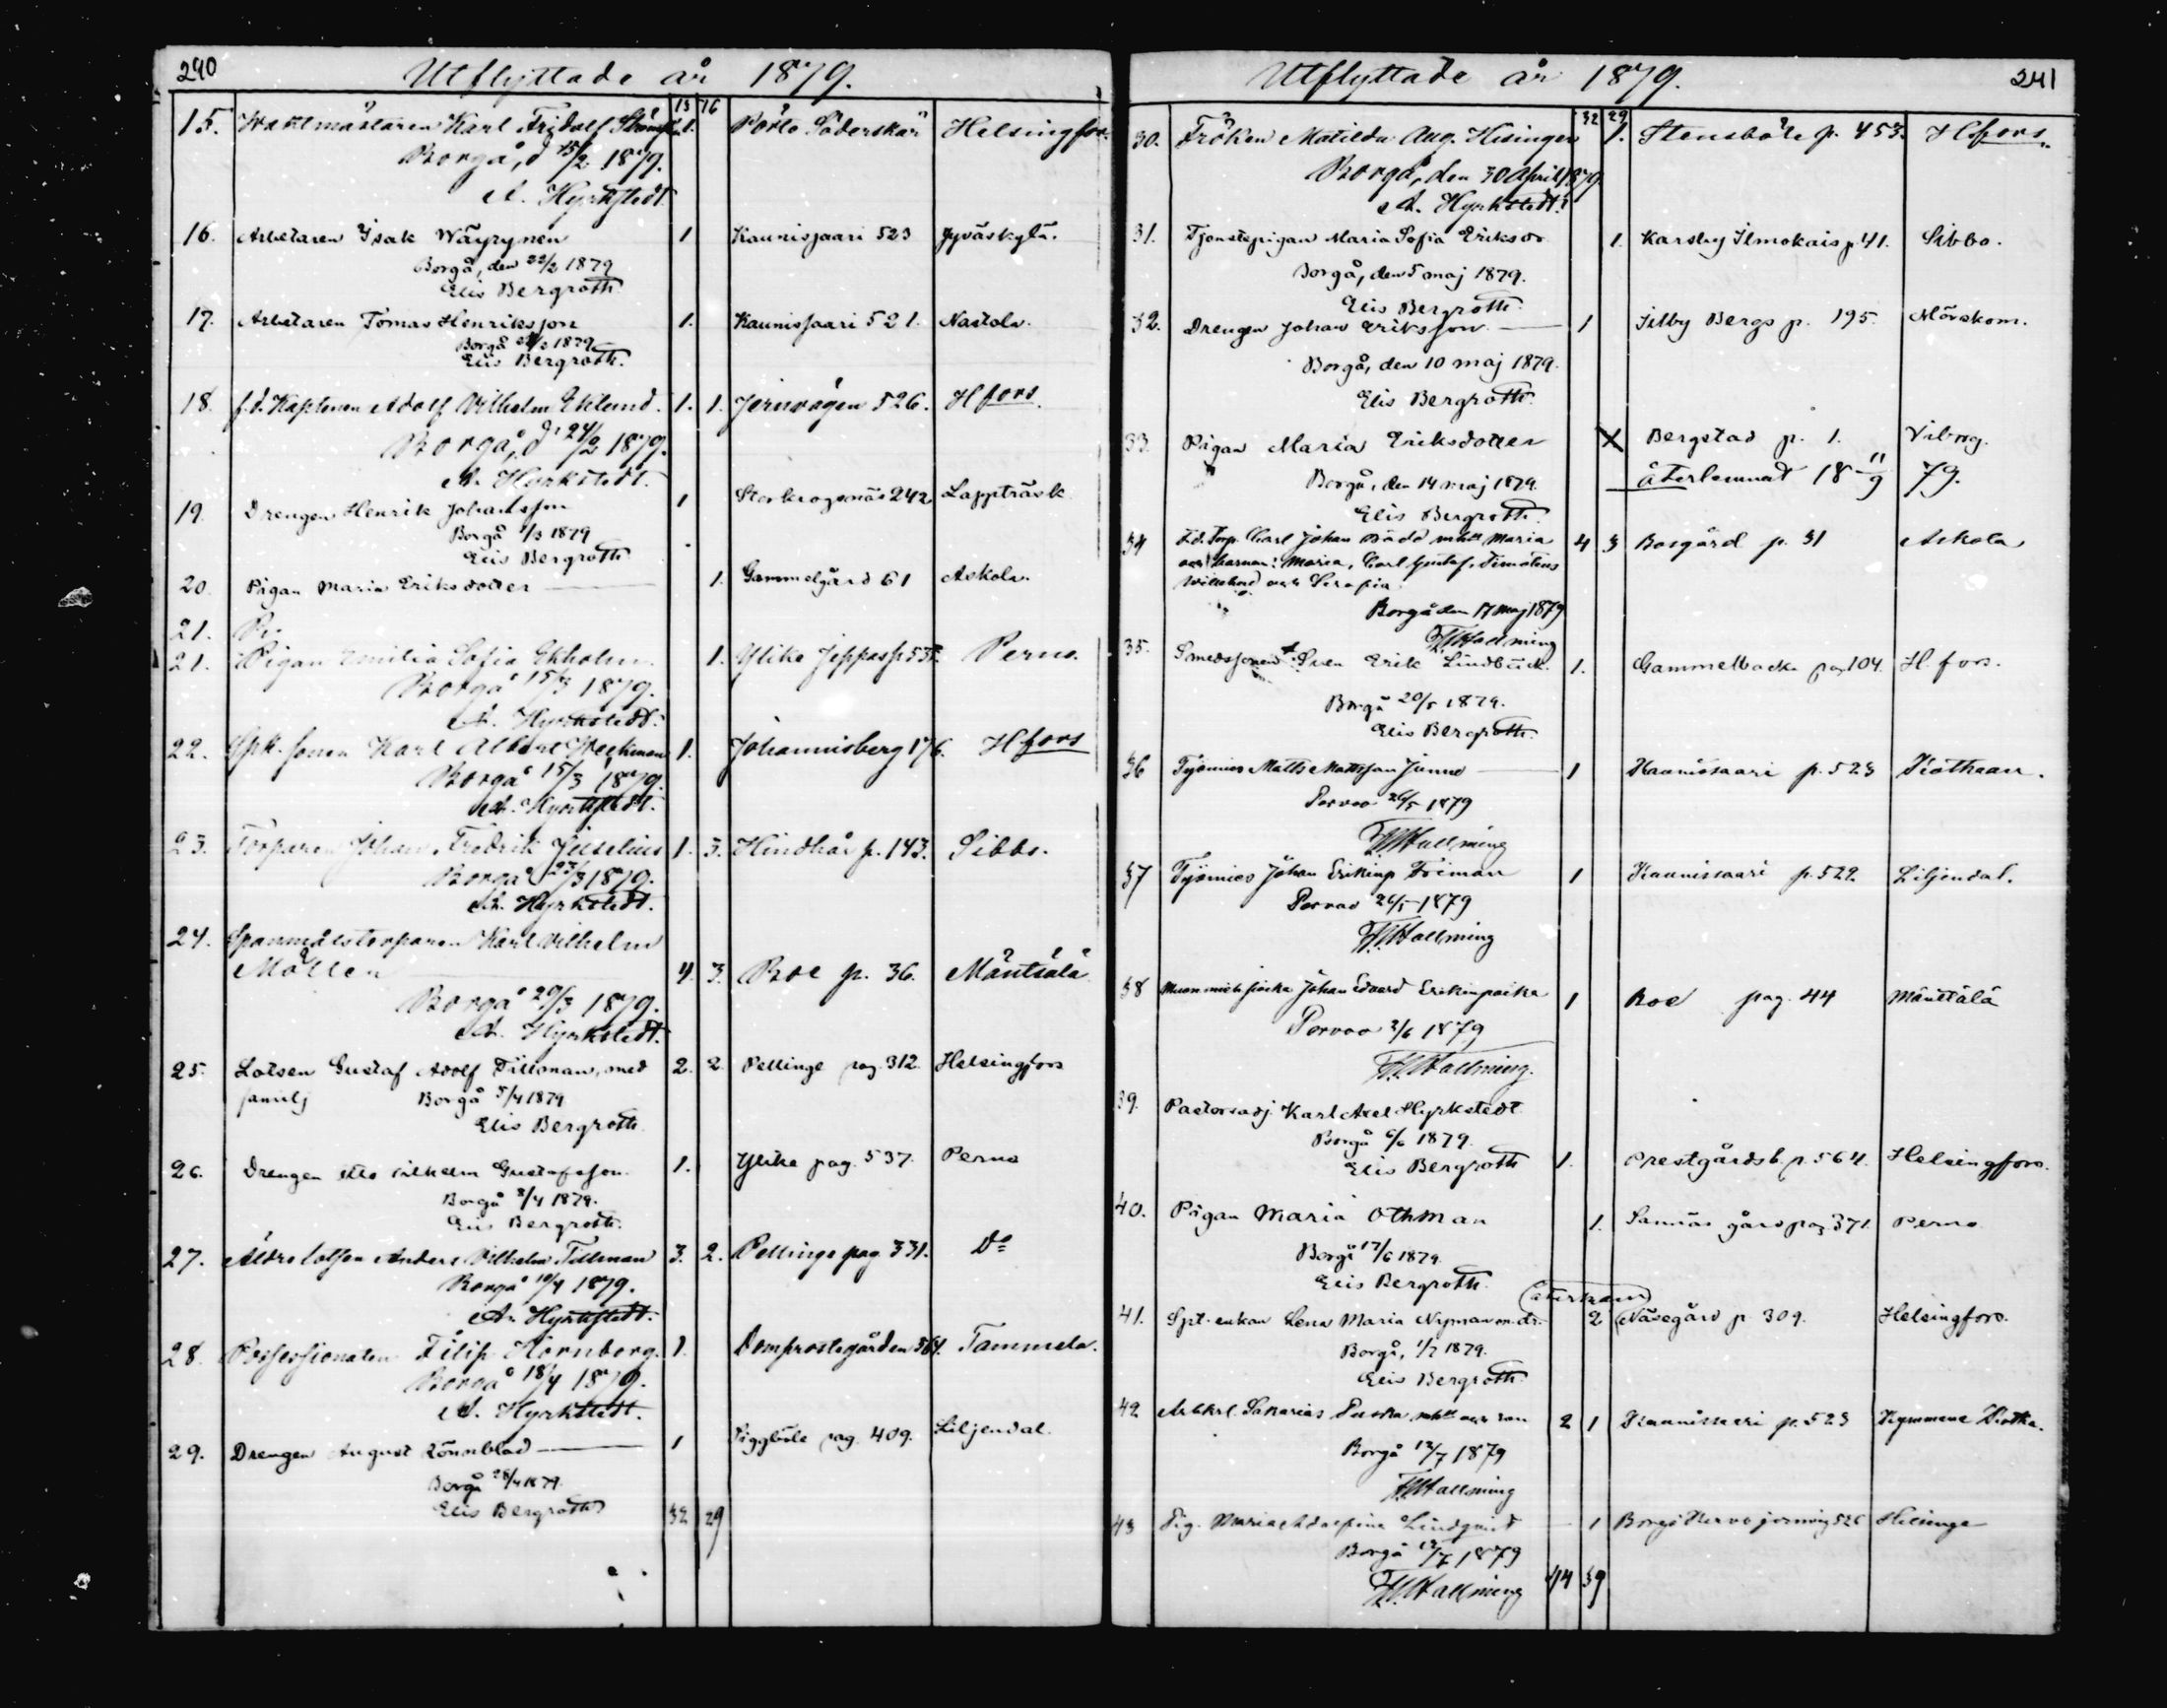 240 Utflyttade år 1879.
13 16
15. Waktmästaren Karl Fridolf 1. Pörtö Söderskär Helsingfors.
Borgå, d 15/2 1879.
A. Hyrkstedt.
16. Arbetaren Isak Wäyrynen 1 Kaunissaari 523 Jyväskylä.
Borgå, den 22/2 1879
Elis Bergroth.
17. Arbetaren Tomas Henriksson 1. Kaunissaari 521. Nastola.
Borgå 1879
Elis Bergroth.
18. f.d. Kaptenen Adolf Vilhelm Eklund. 1. 1. Jernvägen 526. Hfors.
Borgå, d. 24/2 1879.
A. Hyrkstedt.
19. Drengen Henrik Johansson 1 Storkrogsnäs 242 Lappträsk
Borgå 1/3 1879
Elis Bergroth
20. Pigan Maria Eriksdotter 1. Gammelgård 61 Askola.
21. Pi
21. Pigan Emilia Sofia Ekholm. 1. Ylike Jeppas p 535. Perno.
Borgå 15/3 1879.
A. Hyrkstedt.
22. Spk. sonen Karl Albert Weckman 1. Johannisberg 176. Hfors
Borgå 15/3 1879.
A. Hyrkstedt.
23. Torparen Johan Fredrik Juselius 1. 3. Hindhår p. 143. Sibbo.
Borgå 23/3 1879.
A. Hyrkstedt.
24. Spanmålstorparen Karl Vilhelm
Möller 4. 3. Boe p. 36. Mäntsälä
Borgå 29/3 1879.
A. Hyrkstedt.
25. Lotsen Gustaf Adolf Tillman, med 2. 2. Pellinge pag. 312. Helsingfors
familj Borgå 5/4 1879
Elis Bergroth
26. Drengen Otto Vilhelm Gustafsson. 1. Ylike pag. 537. Perno
Borgå 8/4 1879.
Elis Bergroth.
27. Äldre lotsen Anders Vilhelm Tillman 3. 2. Pellinge pag. 331. Do
Borgå 10/4 1879.
A. Hyrkstedt.
28. Possessionaten Filip Hornborg. 1. Domprostegården 564. Tammela.
Borgå 18/4 1879.
A. Hyrkstedt.
29. Drengen August Rönnblad 1 Piggböle pag. 409. Liljendal.
Borgå 28/4 1879.
Elis Bergroth
32 29
Utflyttade år 1879. 241
32 29
30. Fröken Matilda Aug. Hisinger 1. Stensböle p. 453. Hfors.
Borgå, den 30 April 1879.
A. Hyrkstedt.
31. Tjenstepigan Maria Sofia Eriksdr 1. Karsby Ilmokais p 41. Sibbo.
Borgå, den 5 maj 1879.
Elis Bergroth.
32. Drengen Johan Eriksson 1 Illby Bergs p. 195. Mörskom.
Borgå, den 10 maj 1879.
Elis Bergroth.
33. Pigan Maria Eriksdotter X Bergstad p. 1. Viborg.
återlemnat 18 11/9 79.
Borgå, den 14 maj 1879.
Elis Bergroth.
34 F.d. Torp. Carl Johan mhu Maria 4 3 Bosgård p. 31 Askola
och barnen: Maria, Carl Gustaf, Timoteus
Willehad och Serafia.
Borgå den 17 Maj 1879
Hallming
35. Smedssonen Sven Erik Lindbäck. 1. Gammelbacka pag 104. H. fors.
Borgå 20/5 1879.
Elis Bergroth.
36 Työmies Matts Mattsson Junno 1 Kaunissaari p. 523
Porvoo 26/5 1879
Hallming
37 Työmies Johan Erikinp. Friman 1 Kaunissaari p. 522. Liljendal.
Porvoo 26/5 1879
Hallming
38 Johan Edvard Erikinpoika 1 Boe pag. 44 Mäntsälä
Porvoo 3/6 1879
Hallming.
39. Pastorsadj. Karl Axel Hyrkstedt
Borgå 6/6 1879.
Elis Bergroth 1. Prestgårdsb. p. 564. Helsingfors.
40. Pigan Maria Othman 1. Sannäs gård pag 371. Perno
Borgå 17/6 1879.
Elis Bergroth.
(återkom)
41. Spt. enkan Lena Maria Nyman m. dr. 2 Näsegård p. 309. Helsingfors.
Borgå, 1/7 1879.
Elis Bergroth.
42 Arbkrl. Sakarias Puska mhu och son 2 1 Kaunissaari p. 523 Kymmene Kotka.
Borgå 12/7 1879
Hallming
43 Pig. Maria Adolfina Lindqvist 1 Borgå Kervo jernväg 526 Helsinge
Borgå 12/7 1879
Hallming 44 39